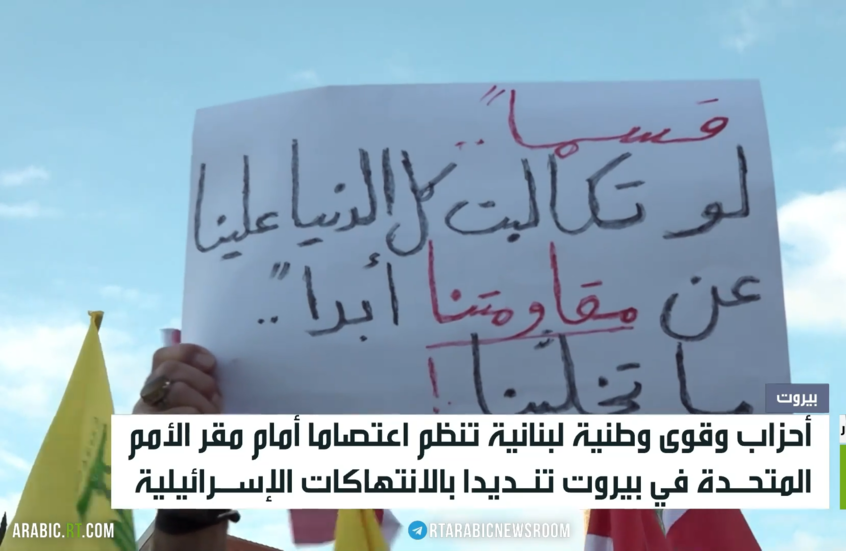 قسماً..
لو تكالبت كل الدنيا علينا
عن مقاومتنا أبداً..
ما تخلينا!
بيروت
أحزاب وقوى وطنية لبنانية تنظم اعتصاما أمام مقر الأمم
المتحدة في بيروت تنديدا بالانتهاكات الإسرائيلية
ARABIC.RT.COM
RTARABICNEWSROOM